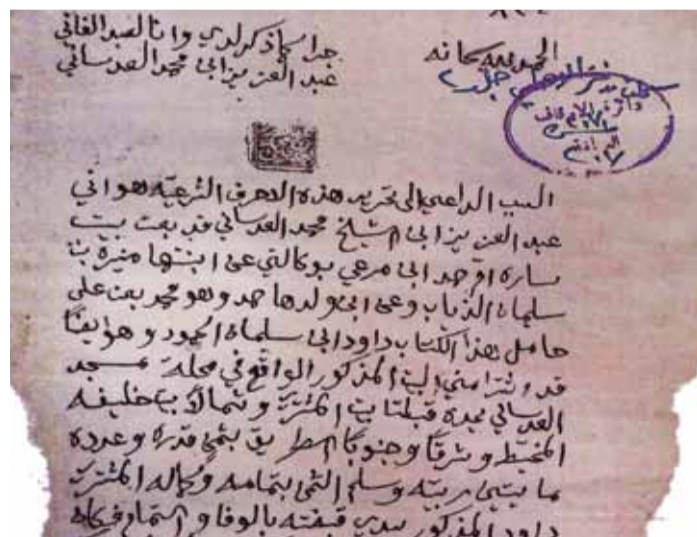 الحمد لله سبحانه
جرا كما ذكر لدي وانا العبد الفاني
عبد العزيز ابن محمد العدساني
دائرة الاوقاف
السبب الداعي الى تحرير هذه الاحرف الشرعيه هو اني
عبد العزيز ابن الشيخ محمد العدساني قد بعت بيت
ساره ابن مرعي بوكالتي عن ابنتها منيره بنت
سلمان الذياب وعن ابن ولدها حمد وهو محمد بعت على
حامل هذا الكتاب داود ابن سلمان الحمود وهو ايضًا
قد اشترا مني البيت المذكور الواقع في محلة مسجد
العدساني يحده قبلتًا بيت المشتري وشمالًا بيت خليفه
المخيط وشرقًا وجنوبًا الطريق بثمن قدره وعدده
مايتين ربيه وسلم الثمن بتمامه وكماله المشتري
داود المذكور بيدي قبضته بالوفا و التمام فكان